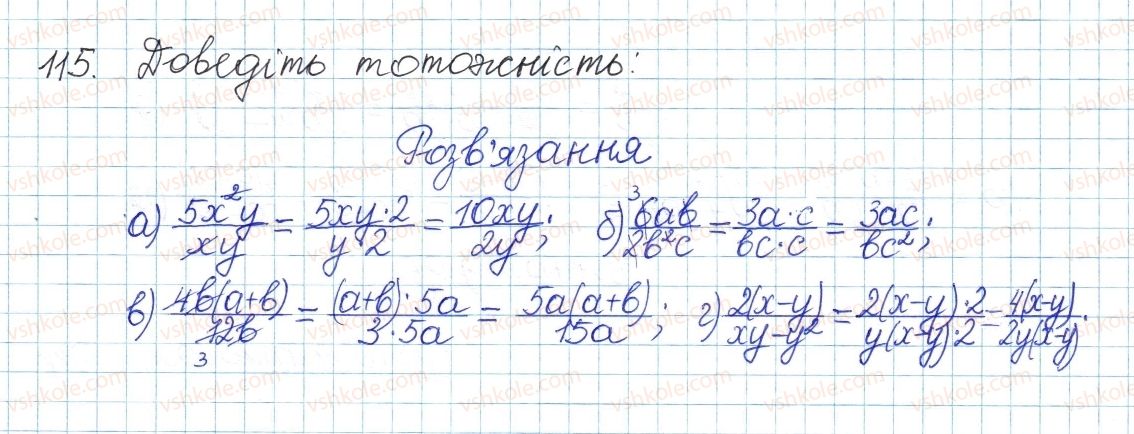 115. Доведіть тотожність:
Розв'язання
а) 5x²y/xy = 5xy·2/y·2 = 10xy/2y; б) ³6ab/2b²c = 3a·c/bc·c = 3ac/bc²;
в) 4b(a+b)/12b 3 = (a+b)·5a/3·5a = 5a(a+b)/15a; г) 2(x-y)/xy-y² = 2(x-y)·2/y(x-y)·2 = 4(x-y)/2y(x-y).